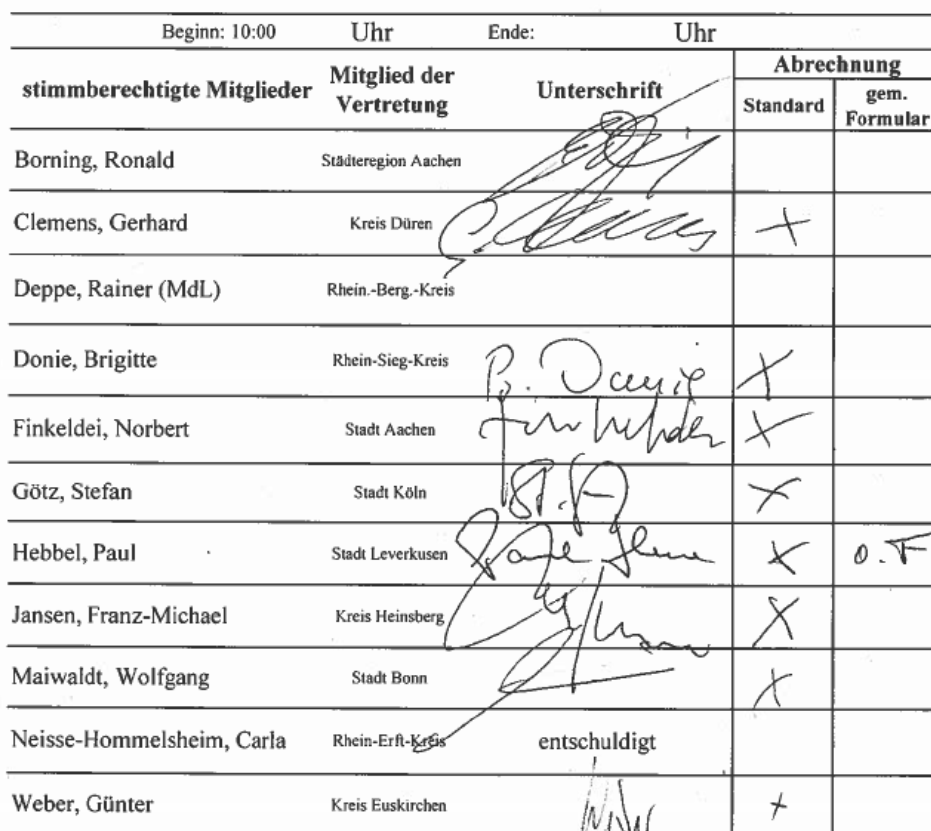 Beginn: 10:00 Uhr Ende: Uhr
stimmberechtigte Mitglieder Mitglied der Vertretung Unterschrift Abrechnung
Standard gem. Formular
Borning, Ronald Städteregion Aachen
Clemens, Gerhard Kreis Düren
Deppe, Rainer (MdL) Rhein.-Berg.-Kreis
Donie, Brigitte Rhein-Sieg-Kreis B. Donie X
Finkeldei, Norbert Stadt Aachen X
Götz, Stefan Stadt Köln X
Hebbel, Paul Stadt Leverkusen X o. F
Jansen, Franz-Michael Kreis Heinsberg X
Maiwaldt, Wolfgang Stadt Bonn X
Neisse-Hommelsheim, Carla Rhein-Erft-Kreis entschuldigt
Weber, Günter Kreis Euskirchen